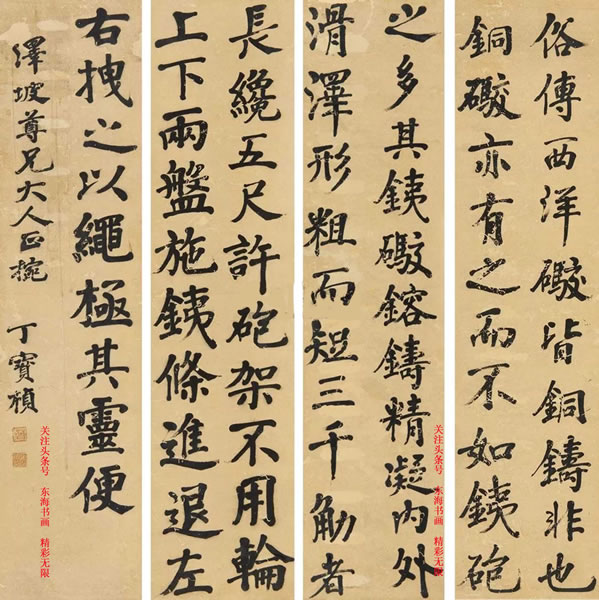 俗傳西洋礮皆銅鑄非也
銅礮亦有之而不如銕砲
之多其銕礮鎔鑄精凝內外
滑澤形粗而短三千觔者
長纔五尺許砲架不用輪
上下兩盤施銕條進退左
右拽之以繩極其靈便
繹坡尊兄大人正捥
丁寶楨
关注头条号 东海书画 精彩无限
关注头条号 东海书画 精彩无限